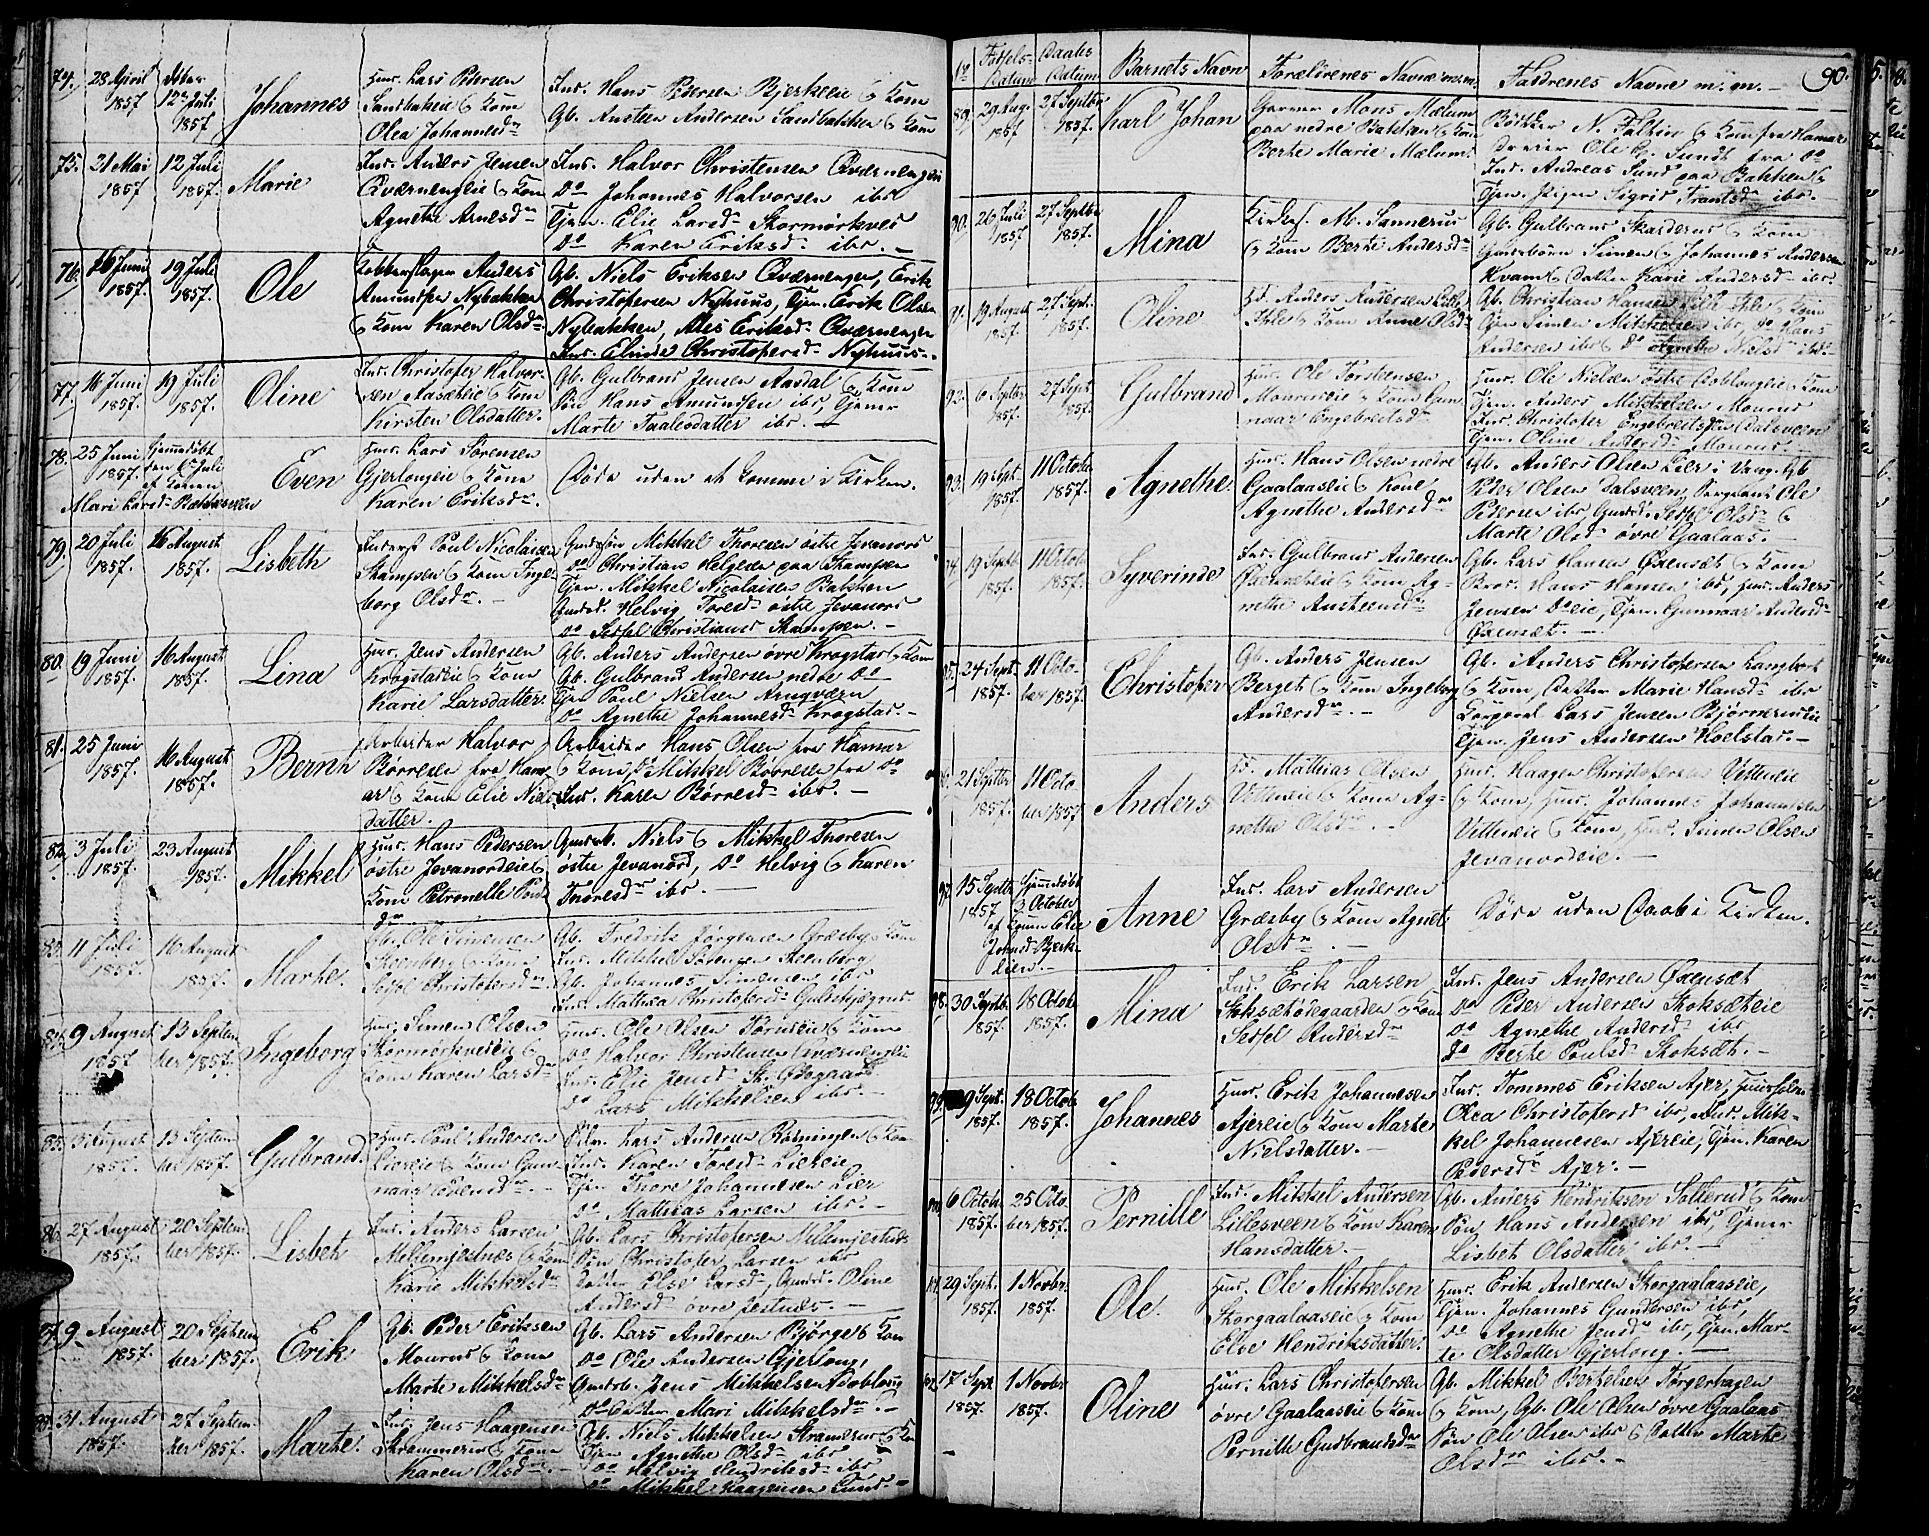 74. 28 April 1857. 12te Juli 1857. Johannes
Huus. Lars Pedersen
Sandbakeie & Kone
Olea Johannesdr
Ins. Hans Pedersen Bjerkeeie & Kone
Gb. Austeen Andersen Sandbakken & Kone
75. 21 Mai 1857. 12 Juli 1857. Marie
Ins. Anders Jensen
Qværnengeie & Kone
Agnethe Arnesdr
Ins. Halvor Christensen Qværnengeie
Do Johannes Halvorsen ibr
Tjen. Elie Larsdr Skormørkved
Do Karen Eriksdr ibr. —
76. 16 Juni 1857. 19 Juli 1857. Ole
Kobberslager Anders
Amundsen Nybakken
& Kone Karen Olsdr
Gb. Niels Eriksen Qværnengen, Erik
Christophersen Nyhuus, Tjen. Erik Olsen
Nybakken, Ales Eriksdr Qværnengen
Ins. Elinde Christophersdr Nyhuus.
77. 16 Juni 1857. 19 Juli 1857. Oline
Ins. Christofer Halvor-
sen Aasæteie & Kone
Kirsten Olsdatter.
Gb. Gulbrand Jensen Aasdal & Kone
Søn Hans Amundsen ibr, Tjener
Marte Paalesdatter ibr. —
78. 25 Juni 1857. Hjemmedøbt den Juli af Konen
Mari Larsdr Bakkesveen
Even
Huus. Lars Sørensen
Gjerlougeie & Kone
Karen Eriksdr.
Døde uden at komme i Kirken.
79. 20 Juli 1857. 16 August 1857. Lisbeth
Inderst Poul Nicolaisen
Stampen & Kone Inge-
borg Olsdr. —
Gaardsøn Mikkel Thoresen østre Jevanord
Do Christian Helgesen paa Stampen
Tjen. Mikkel Nicolaisen Bakken
Gaardd. Helvig Toresdr østre Jevanord
Do Sidsel Christiansd Stampen. —
80. 19 Juni 1857. 16 August 1857. Lina
Huus. Jens Andersen
Kragstadeie & Kone
Karie Larsdatter.
Gb. Anders Andersen øvre Kragstad & Kone
Gb. Gulbrand Andersen nedre Do
Tjen Poul Nielsen Arnqværn
Do Agnethe Johannesdr Kragstad. —
81. 25 Juni 1857. 16 August 1857. Bernh
Arbeider Halvor
Børresen fra Ham-
ar & Kone Elie Niels-
datter.
Arbeider Hans Olsen fra Hamar
& Kone, Do Mikkel Børresen fra Do
Ins. Karen Børresdr ibr. —
82. 3 Juli 1857. 23 August 1857. Mikkel
Huus. Hans Pedersen
østre Jevanordeie &
Kone Petronelle Pouls
dr
Gaards. Niels & Mikkel Thoresen
østre Jevanord, Do Helvig & Karen
Thoresdr ibr. —
83. 11 Juli 1857. 16 August 1857. Marthe.
Gb. Ole Simensen
Steenberg & Kone
Sidsel Christophersdr
Gb. Fredrik Jørgensen Græsby & Kone
Ins. Mikkel Sørensen Steenberg
Gb. Johannes Simensen ibr
Ins. Mathea Christophersdr
84. 9 August 1857. 13 September 1857. Ingeborg
Huus. Simen Olsen
Skormørkvedeie &
Kone Karen Larsdr
Huus. Ole Olsen & Kone
Do Halvor Christensen Qværnengeie
Ins. Elie Jensdr
Do Lars Mikkelsen ibr. —
85. August 1857. 13 September 1857. Gulbrand.
Huus. Poul Andersen
Liereie & Kone Gun-
naar Evensdr. —
Lars Andersen & Kone
Ins. Karen Toresdr Liereie
Tjen Thore Johannesen Lier
Do Matthias Larsen ibr. —
86. 27 August 1857. 20 September 1857. Lisbet
Ins. Anders Larsen
Mellemjestnes & Kone
Karie Mikkelsdr
Gb. Lars Christofersen Mellemjestnes
Søn Christofer Larsen ibr
Datter Else Larsdr, Gaardd. Oline
Andersd øvre Jestnes. —
87. 9. August 1857. 20 September 1857. Erik
Gb. Peder Eriksen
Maurud & Kone
Marte Mikkelsdr
Gb. Lars Andersen Bjørge & Kone
Do Ole Andersen Gjerloug,
Gaards. Jens Mikkelsen
Do Datter Mari Mikkelsdr. —
88. 31 August 1857. 27 September 1857. Marthe.
Ins. Jens Haagensen
Strammerud & Kone
Karen Olsdr. —
Gb. Niels Mikkelsen Stramerud & Kone
Tjen Agnethe Olsdr ibr
Do Helvig Hendriksdr ibr
Do Mikkel Haagensen Lund. —
90.
No Fødsels-Datum Daabs Datum Barnets Navn Forældrenes Navne m.m. Faddrenes Navne m. m. —
89. 29 Aug. 1857. 27 Septbr 1857. Karl Johan
Garver Mons Mælum
paa nedre Bakken & Kone
Berte Marie Mælum.
Bødker N. Faltin & Kone fra Hamar
Dreier Ole G. Sundt fra Do
Ins. Andreas Lund paa Bakken &
Tjen. Pigen Sigrid Frantsdr ibr.
90. 26 Juli 1857. 27 Septbr 1857. Mina
Kirkes. M. Sannerud
& Kone Berte Andersdr
Gb. Gulbrand Skarderud & Kone
Simen & Johannes Andersen
Kvam & Datter Karie Andersdr ibr.
91. 19 August 1857. 27 Sept. 1857. Oline
Anders Andersen Lille
Ihle & Kone Anne Olsdr
Gb. Christian Hansen Lille Ihle & Kone
Tjen Simen Mikkelsen ibr, do Hans
Andersen ibr & Do Agnethe Nielsdr ibr.
92. 6 Septbr 1857. 27 Sept 1857. Gulbrand
Huus. Ole Torstensen
Maurudeie & Kone Gun
naar Engebretsdr
Huus. Ole Nielsen østre & Kone
Tjen. Anders Mikkelsen Maurud
Ins. Christofer Engebretsen Dalsveen
Tjen. Oline Andersdr Maurud.
93. 19 Sept. 1857. 11 Octobr 1857. Agnethe.
Huus. Hans Olsen nedre
Gaalaaseie & Kone
Agnethe Andersdr
Gb. Anders Olsen Lier i Vang. Gb
Peder Olsen Dalsveen, Sergeant Ole
Pedersen ibr, Gaardd. Sidsel Olsdr &
Marte Olsdr øvre Gaalaas. —
94. 19 Septbr 1857. 11 Octob 1857. Syverinde
Ins. Gulbrand Andersen
& Kone Ag-
nethe Austeensdr
Gb. Lars Hansen Øxensæt & Kone
Broder Hans Hansen ibr, Huus. Anders
Jensen Doeie, Tjen. Gunnaar Andersdr
Øxensæt. —
95. 24 Sept 1857. 11 October 1857. Christofer
Gb. Anders Jensen
Berget & Kone Ingeborg
Andersdr. —
Gb. Anders Christofersen Langbot
& Kone, Datter Marie Hansdr ibr
Korporal Lars Jensen Bjørnerudeie
Tjen. Jens Andersen Hoelstad. —
96. 21 Septbr 1857. 11 October 1857 Anders
Matthias Olsen
Vetteneie & Kone Ag-
nethe Olsdr. —
Huus. Haagen Christofersen Vetteneie
& Kone, Huus. Johannes Johannesen
Vetteneie & Kone, Huus. Simen Olsen
Jevanordeie. —
97. 15 Septbr 1857 Hjemmedøbt 3 October af Konen Elie Johnsd Bjerk-
eien. —
Anne
Ins. Lars Andersen
Græsby & Kone Agnet
Olsdr. —
Døde uden Daab i Kirken.
98. 30 Septbr 1857. 18 October 1857. Mina
Ins. Erik Larsen
Stoksætødegaarden & Kone
Sidsel Andersdr
Ins. Jens Andersen Øxensæt
Do Peder Andersen Stoksæteie
Do Agnethe Andersd ibr
Do Berte Poulsdr Stoksæt. —
99. 9 Sept. 1857. 18 October 1857. Johannes
Huus. Erik Johannesen
Ajereie & Kone Marte
Nielsdatter. —
Ins. Tommes Eriksen Ajer, Huusholder
Olea Christofersd ibr, Ins. Mik-
kel Johannesen Ajereie, Tjen. Karen
Pedersdr Ajer. —
100. 6 Octobr 1857. 25 October 1857. Pernille
Ins. Mikkel Andersen
Lillesveen & Kone Karen
Hansdatter. —
Gb. Anders Hendriksen Sollerud & Kone
Søn Hans Andersen ibr, Tjener
Lisbet Olsdatter ibr. —
101. 29 Sept. 1857. 1 Novbr. 1857. Ole.
Huus. Ole Mikkelsen
Skorgaalaaseie & Kone
Else Hendriksdatter.
Huus. Erik Andersen Skorgaalaaseie,
Tjen. Johannes Gundersen ibr
Do Agnethe Jensdr ibr, Tjen. Mar-
te Olsdatter Gjerloug. —
102. 17 Sept 1857. 1 Novbr 1857. Oline
Huus. Lars Christofersen
øvre Gaalaaseie & Kone
Pernille Gudbrandsdr
Gb. Mikkel Bertelsen Torgerhagen
& Kone, Gb. Ole Olsen øvre Gaalaas
Søn Ole Olsen ibr & Datter Marte
Olsdr ibr. —